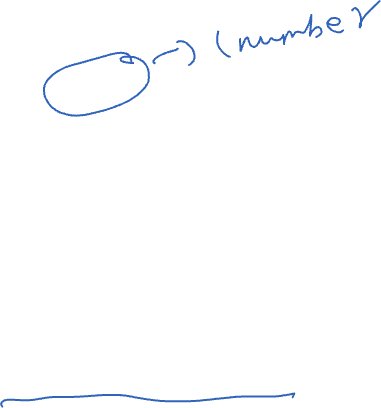 → (number